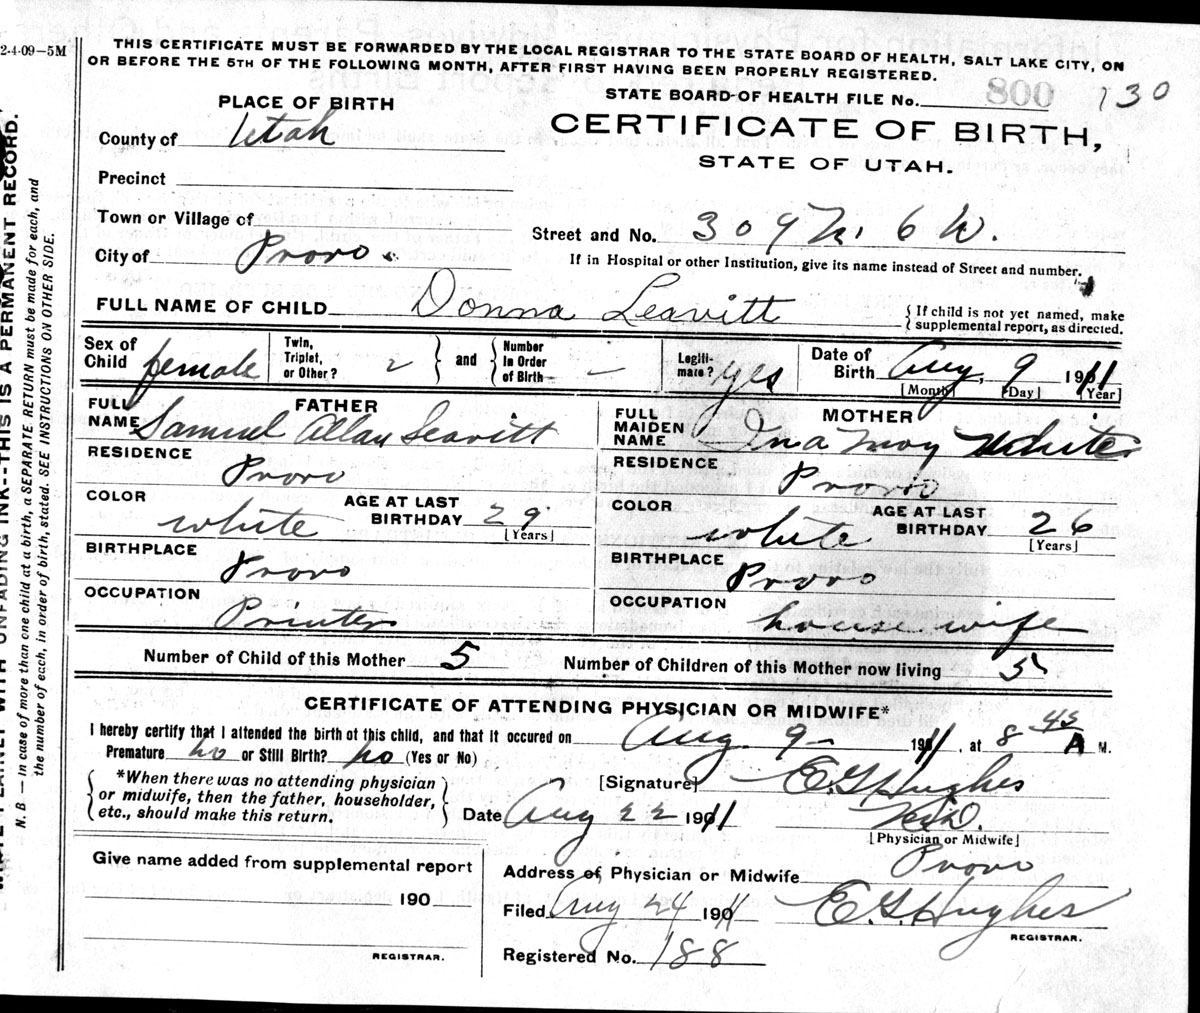 2-4-09—5M
THIS CERTIFICATE MUST BE FORWARDED BY THE LOCAL REGISTRAR TO THE STATE BOARD OF HEALTH, SALT LAKE CITY, ON
OR BEFORE THE 5TH OF THE FOLLOWING MONTH, AFTER FIRST HAVING BEEN PROPERLY REGISTERED.
STATE BOARD OF HEALTH FILE No. 800 130
PLACE OF BIRTH
CERTIFICATE OF BIRTH,
STATE OF UTAH.
County of Utah
Precinct
Town or Village of
Street and No. 309 N. 6 W.
City of Provo.
If in Hospital or other Institution, give its name instead of Street and number.
FULL NAME OF CHILD Donna Leavitt
If child is not yet named, make
supplemental report, as directed.
Sex of Child female
Twin, Triplet, or Other?
and
Number in Order of Birth –
Legitimate? yes
Date of Birth Aug, 9 1911
[Month] [Day] [Year]
FATHER
FULL NAME Samuel Allan Leavitt
RESIDENCE Provo
COLOR white
AGE AT LAST BIRTHDAY 29
[Years]
BIRTHPLACE Provo
OCCUPATION Printer
MOTHER
FULL MAIDEN NAME Ina May White
RESIDENCE Provo
COLOR white
AGE AT LAST BIRTHDAY 26
[Years]
BIRTHPLACE Provo
OCCUPATION house wife
Number of Child of this Mother 5
Number of Children of this Mother now living 5
CERTIFICATE OF ATTENDING PHYSICIAN OR MIDWIFE*
I hereby certify that I attended the birth of this child, and that it occured on Aug. 9– 1911, at 8 45 A M.
Premature no or Still Birth? no (Yes or No)
*When there was no attending physician
or midwife, then the father, householder,
etc., should make this return.
[Signature] E. G. Hughes
Date Aug 22 1911
M.D.
[Physician or Midwife]
Give name added from supplemental report
190
REGISTRAR.
Address of Physician or Midwife Provo
Filed Aug 24 1911 E. G. Hughes
REGISTRAR.
Registered No. 188
WRITE PLAINLY WITH UNFADING INK--THIS IS A PERMANENT RECORD.
N. B. — In case of more than one child at a birth, a SEPARATE RETURN must be made for each, and
the number of each, in order of birth, stated. SEE INSTRUCTIONS ON OTHER SIDE.